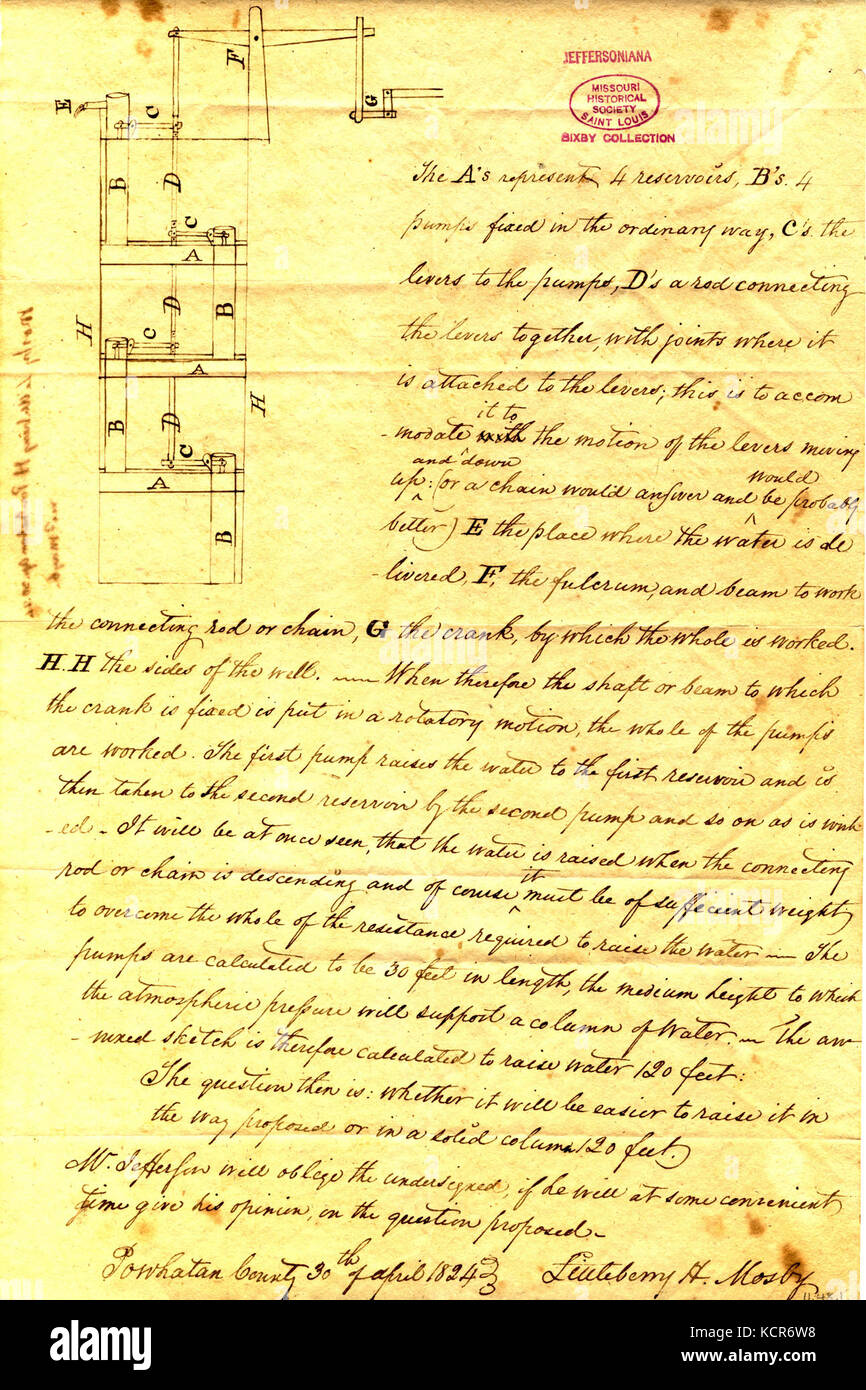 JEFFERSONIANA
MISSOURI
HISTORICAL
SOCIETY
SAINT LOUIS
BIXBY COLLECTION
E
C
F
G
B
D
C
A
H
D
B
C
A
H
B
D
C
A
B
The A's represent 4 reservoirs, B's. 4
pumps fixed in the ordinary way, C's the
levers to the pumps, D's a rod connecting
the levers together, with joints where it
is attached to the levers; this is to accom
it to
-modate the motion of the levers moving
and down would
up: (or a chain would answer and be probably
better) E the place where the water is de
-livered, F, the fulcrum, and beam to work
the connecting rod or chain, G the crank, by which the whole is worked.
H.H the sides of the well. — When therefore the shaft or beam to which
the crank is fixed is put in a rotatory motion, the whole of the pumps
are worked. The first pump raises the water to the first reservoir and is
then taken to the second reservoir by the second pump and so on as is wish
-ed - It will be at once seen, that the water is raised when the connecting
it
rod or chain is descending and of course must be of suffecient weight
to overcome the whole of the resistance required to raise the water — The
pumps are calculated to be 30 feet in length, the medium height to which
the atmospheric pressure will support a column of Water. — The an-
-nexed sketch is therefore calculated to raise water 120 feet:
The question then is: whether it will be easier to raise it in
the way proposed or in a solid column 120 feet.)
Mr. Jefferson will oblige the undersigned, if he will at some convenient
time give his opinion, on the question proposed -
Powhatan County 30th of april 1824
Littleberry H. Mosby
alamy
Image ID: KCR6W8
www.alamy.com